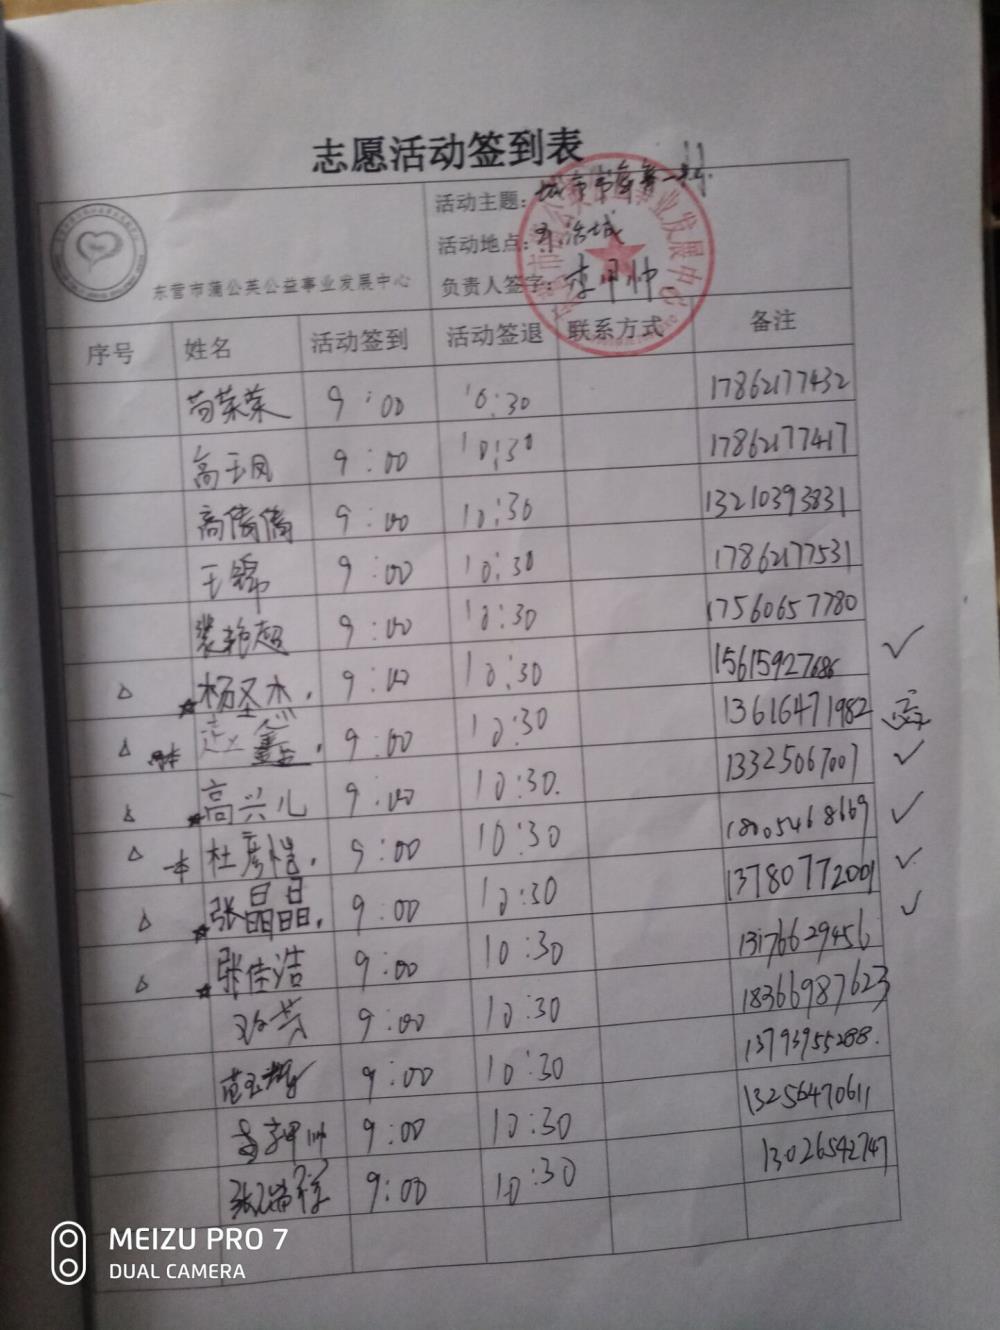 志愿活动签到表
活动主题:城市
东营市蒲公英公益事业发展中心
活动地点:
负责人签字:
序号 姓名 活动签到 活动签退 联系方式 备注
苟荣荣 9:00 10:30 17862177432
高玉凤 9:00 10:30 17862177417
高倩倩 9:00 10:30 13210393831
王锦 9:00 10:30 17862177531
张艳超 9:00 10:30 17560657780
△ ★杨圣杰. 9:00 10:30 15615927686 ✓
△ 赵鑫. 9:00 10:30 13616471982
△ ★高兴儿 9:00 10:30. 13325067007 ✓
△ 杜彦恺. 9:00 10:30 18005468669 ✓
△ ★张晶晶. 9:00 10:30 13780772001 ✓
△ ★张佳浩 9:00 10:30 13176629456 ✓
9:00 10:30 18366987623
范玉辉 9:00 10:30 13793955288.
9:00 10:30 13256470611
张瑞祥 9:00 10:30 13026542747
MEIZU PRO 7
DUAL CAMERA